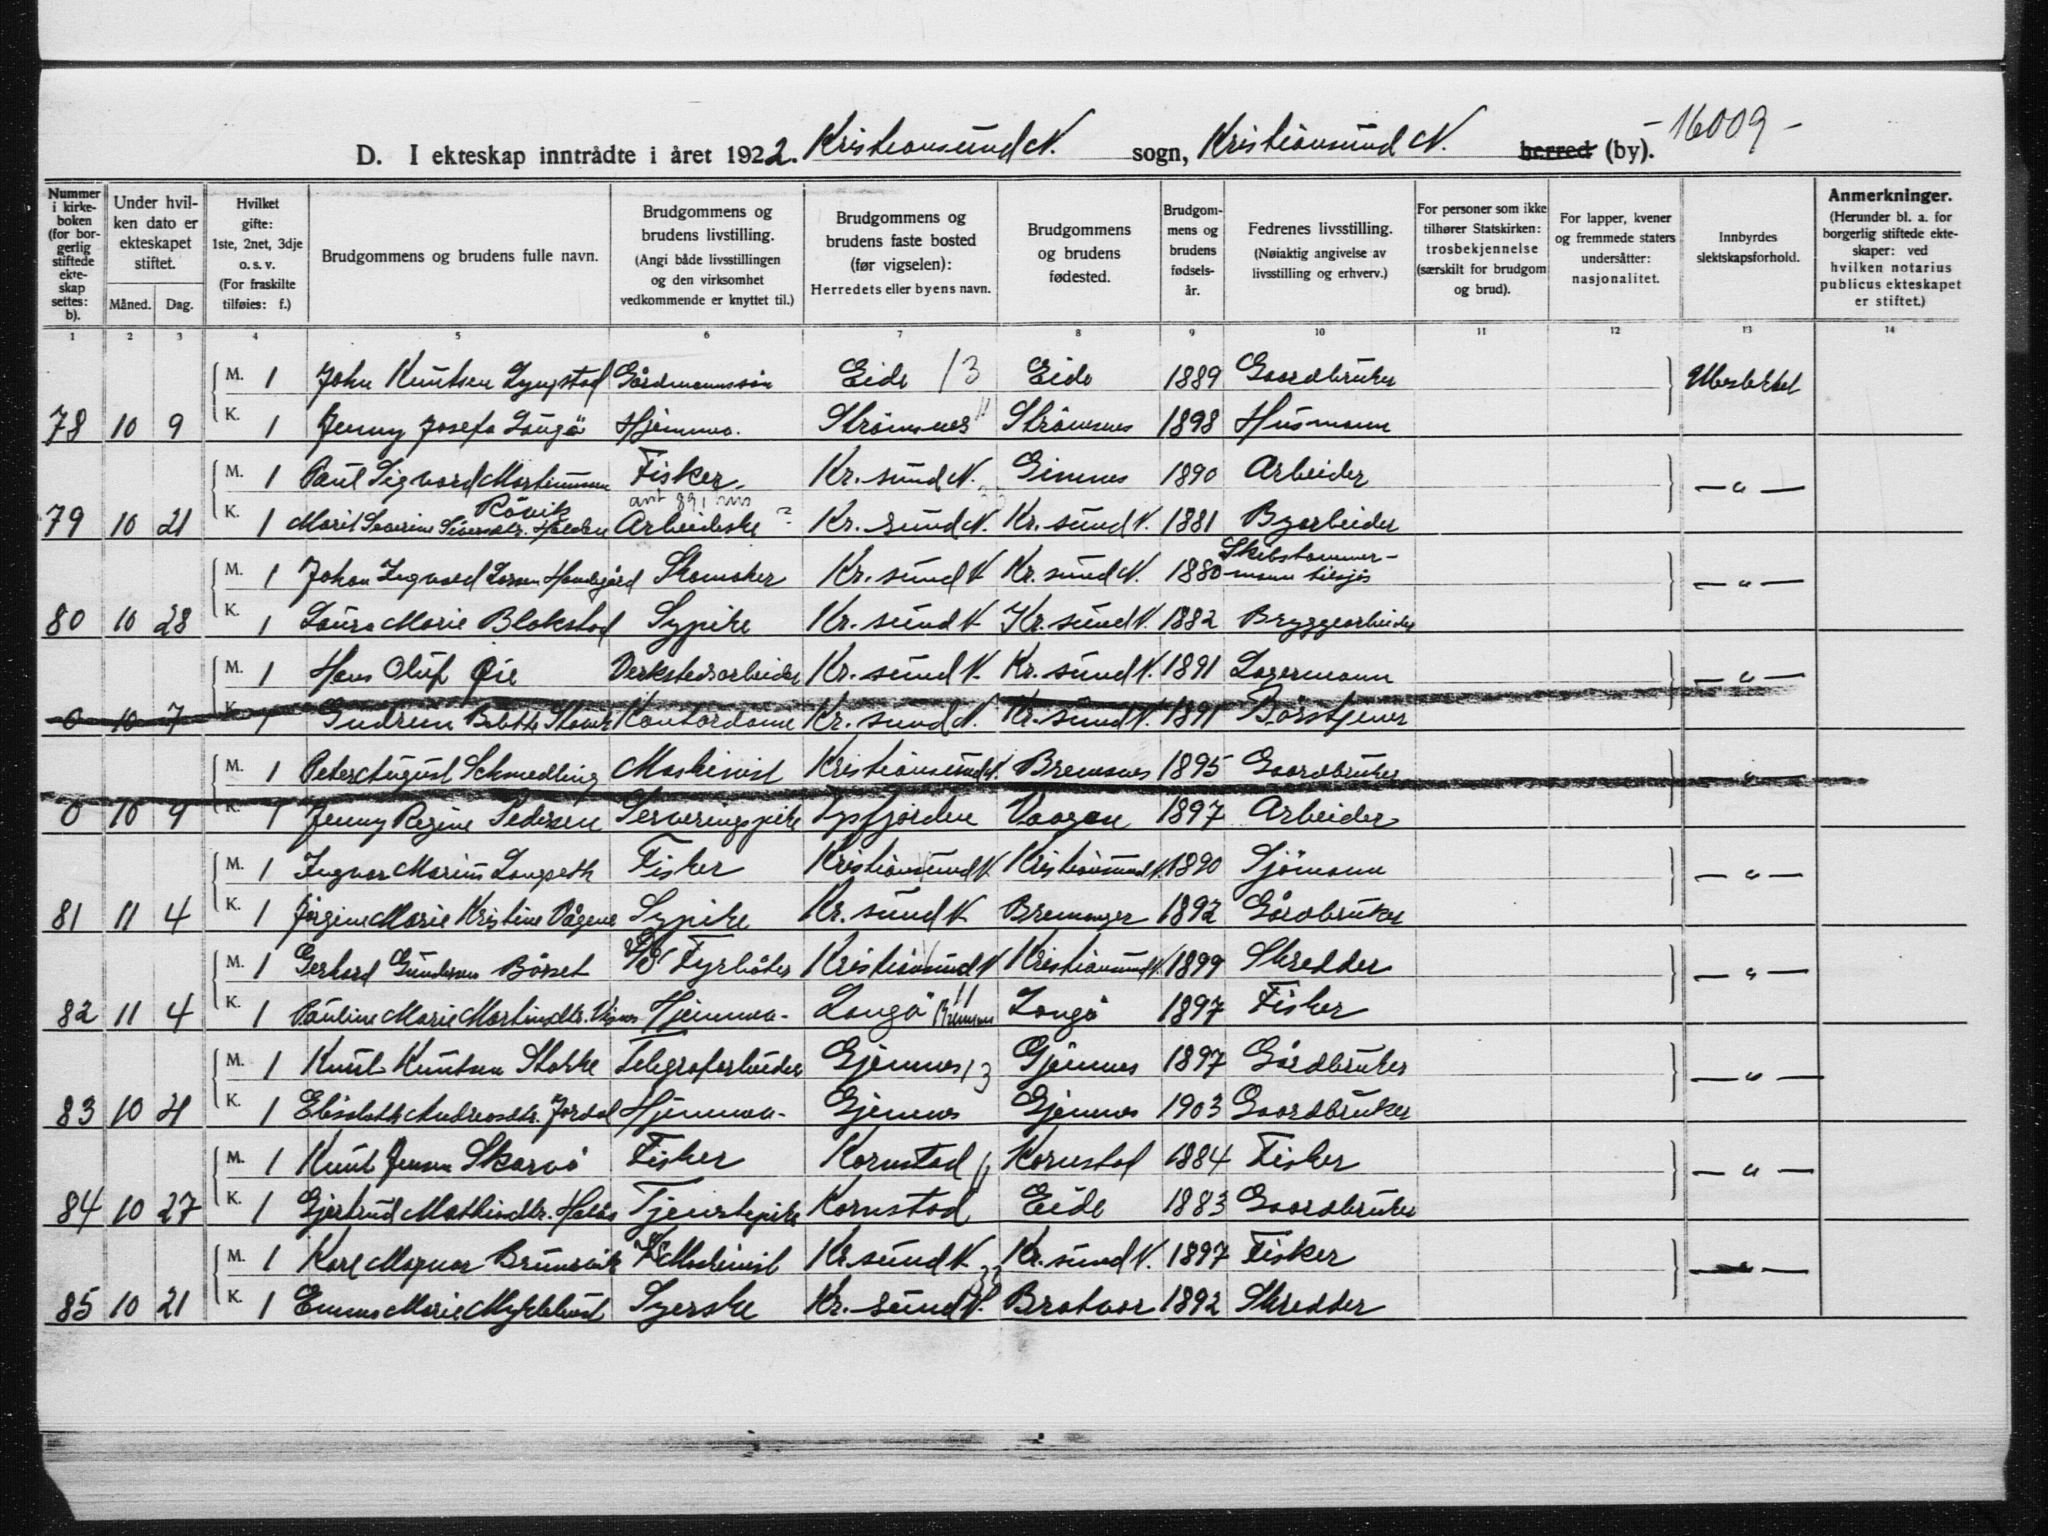 D. I ekteskap inntrådte i året 1922. Kristiansund N. sogn, Kristiansund N. herred (by). -16009-
Nummer i kirkeboken (for borgerlig stiftede ekteskap settes: b).
Under hvilken dato er ekteskapet stiftet. Måned. Dag.
Hvilket gifte: 1ste, 2net, 3dje o. s. v. (For fraskilte tilføies: f.)
Brudgommens og brudens fulle navn.
Brudgommens og brudens livstilling. (Angi både livsstillingen og den virksomhet vedkommende er knyttet til.)
Brudgommens og brudens faste bosted (før vigselen): Herredets eller byens navn.
Brudgommens og brudens fødested.
Brudgommens og brudens fødselsår.
Fedrenes livsstilling. (Nøiaktig angivelse av livsstilling og erhverv.)
For personer som ikke tilhører Statskirken: trosbekjennelse (særskilt for brudgom og brud).
For lapper, kvener og fremmede staters undersåtter: nasjonalitet.
Innbyrdes slektskapsforhold.
Anmerkninger. (Herunder bl. a. for borgerlig stiftede ekteskaper: ved hvilken notarius publicus ekteskapet er stiftet.)
1 2 3 4 5 6 7 8 9 10 11 12 13 14
M. 1 John Knutsen Lyngstad Gårdmannssøn Eide 13 Eide 1889 Gaardbruker Ubeslektet
78 10 9 K. 1 Jenny Josefa Langö Hjemme. Strømsnes 11 Strømsnes 1898 Husmann
M. 1 Paul Sigvard Martinussen Fisker Kr. sund N. Gimnes 1890 Arbeider — " —
Røvik
79 10 21 K. 1 Marit Severine Siversdtr. Halden Arbeiderske ? Kr. sund N. Kr. sund N. 1881 Byarbeider
Skibstømmer-
M. 1 Johan Ingvald Larsen Skomaker Kr. sund N Kr. sund N. 1880 mann tilsjøs — " —
80 10 28 K. 1 Laura Marie Blakstad Sypike Kr. sund N Kr. sund N. 1882 Bryggearbeider
M. 1 Hans Oluf Øie Verkstedsarbeider Kr. sund N. Kr. sund N. 1891 Lagermann — " —
0 10 7 K. 1 Gudrun Kontordame Kr. sund N. Kr. sund N. 1891
M. 1 Peter August Schmedling Maskinist Kristiansund N. Bremsnes 1895 Gaardbruker "
0 10 9 K. 1 Jenny Regine Pedersen Serveringspike Vaagan 1897 Arbeider
M. 1 Ingvar Marius Langseth Fisker Kristiansund N. Kristiansund N. 1890 Sjömann — " —
81 11 4 K. 1 Jörgine Marie Kristine Vågene Sypike Kr. sund N Bremanger 1892 Gårdbruker
M. 1 Gerhard Gundersen Börset Fyrböter Kristiansund N Kristiansund N. 1899 Skredder — " —
82 11 4 K. 1 Pauline Marie Martinsdtr. Hjemme - Langö 11 Bremsnes Langö 1897 Fisker
M. 1 Knut Knutsen Stokke Telegrafarbeider Gjemnes 13 Gjemnes 1897 Gårdbruker — " —
83 10 21 K. 1 Elisabeth Andreasdtr. Jordal Hjemme - Gjemnes Gjemnes 1903 Gaardbruker
M. 1 Knut Jensen Skarvö Fisker Kornstad Kornstad 1884 Fisker — " —
84 10 27 K. 1 Gjertrud Mathiasdtr. Tjenstepike Kornstad Eide 1883 Gaardbruker
M. 1 Karl Magnar Brunsvik Maskinist Kr. sund N Kr. sund N. 1897 Fisker — " —
85 10 21 K. 1 Emma Marie Myklebust Syerske Kr. sund N. Brattvær 1892 Skredder